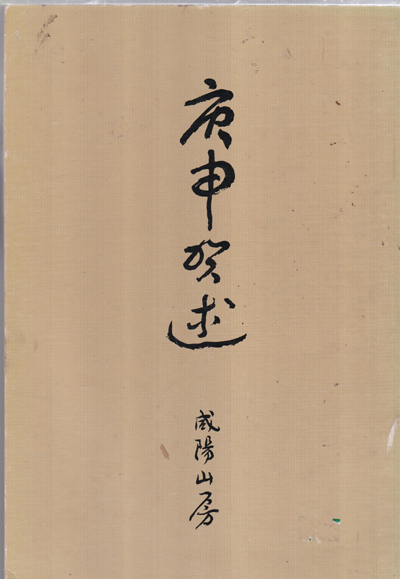 庚申述
咸陽山房